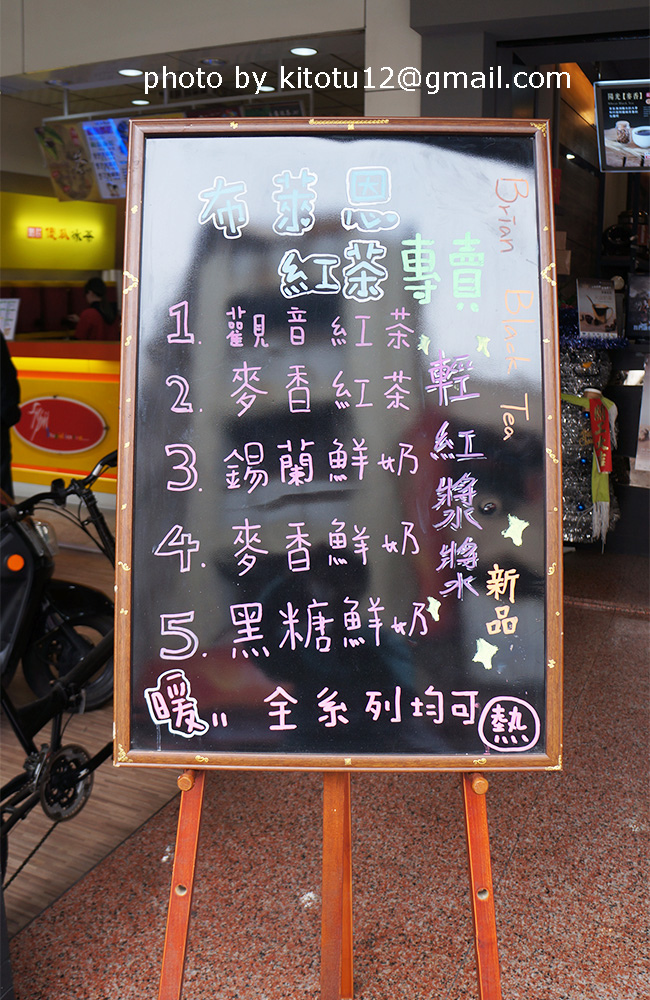 photo by kitotu12@gmail.com
布萊恩
紅茶專賣
Brian Black Tea
1. 觀音紅茶
2. 麥香紅茶
3. 錫蘭鮮奶
4. 麥香鮮奶
5. 黑糖鮮奶
輕紅漿漿
新品
暖 全系列均可熱